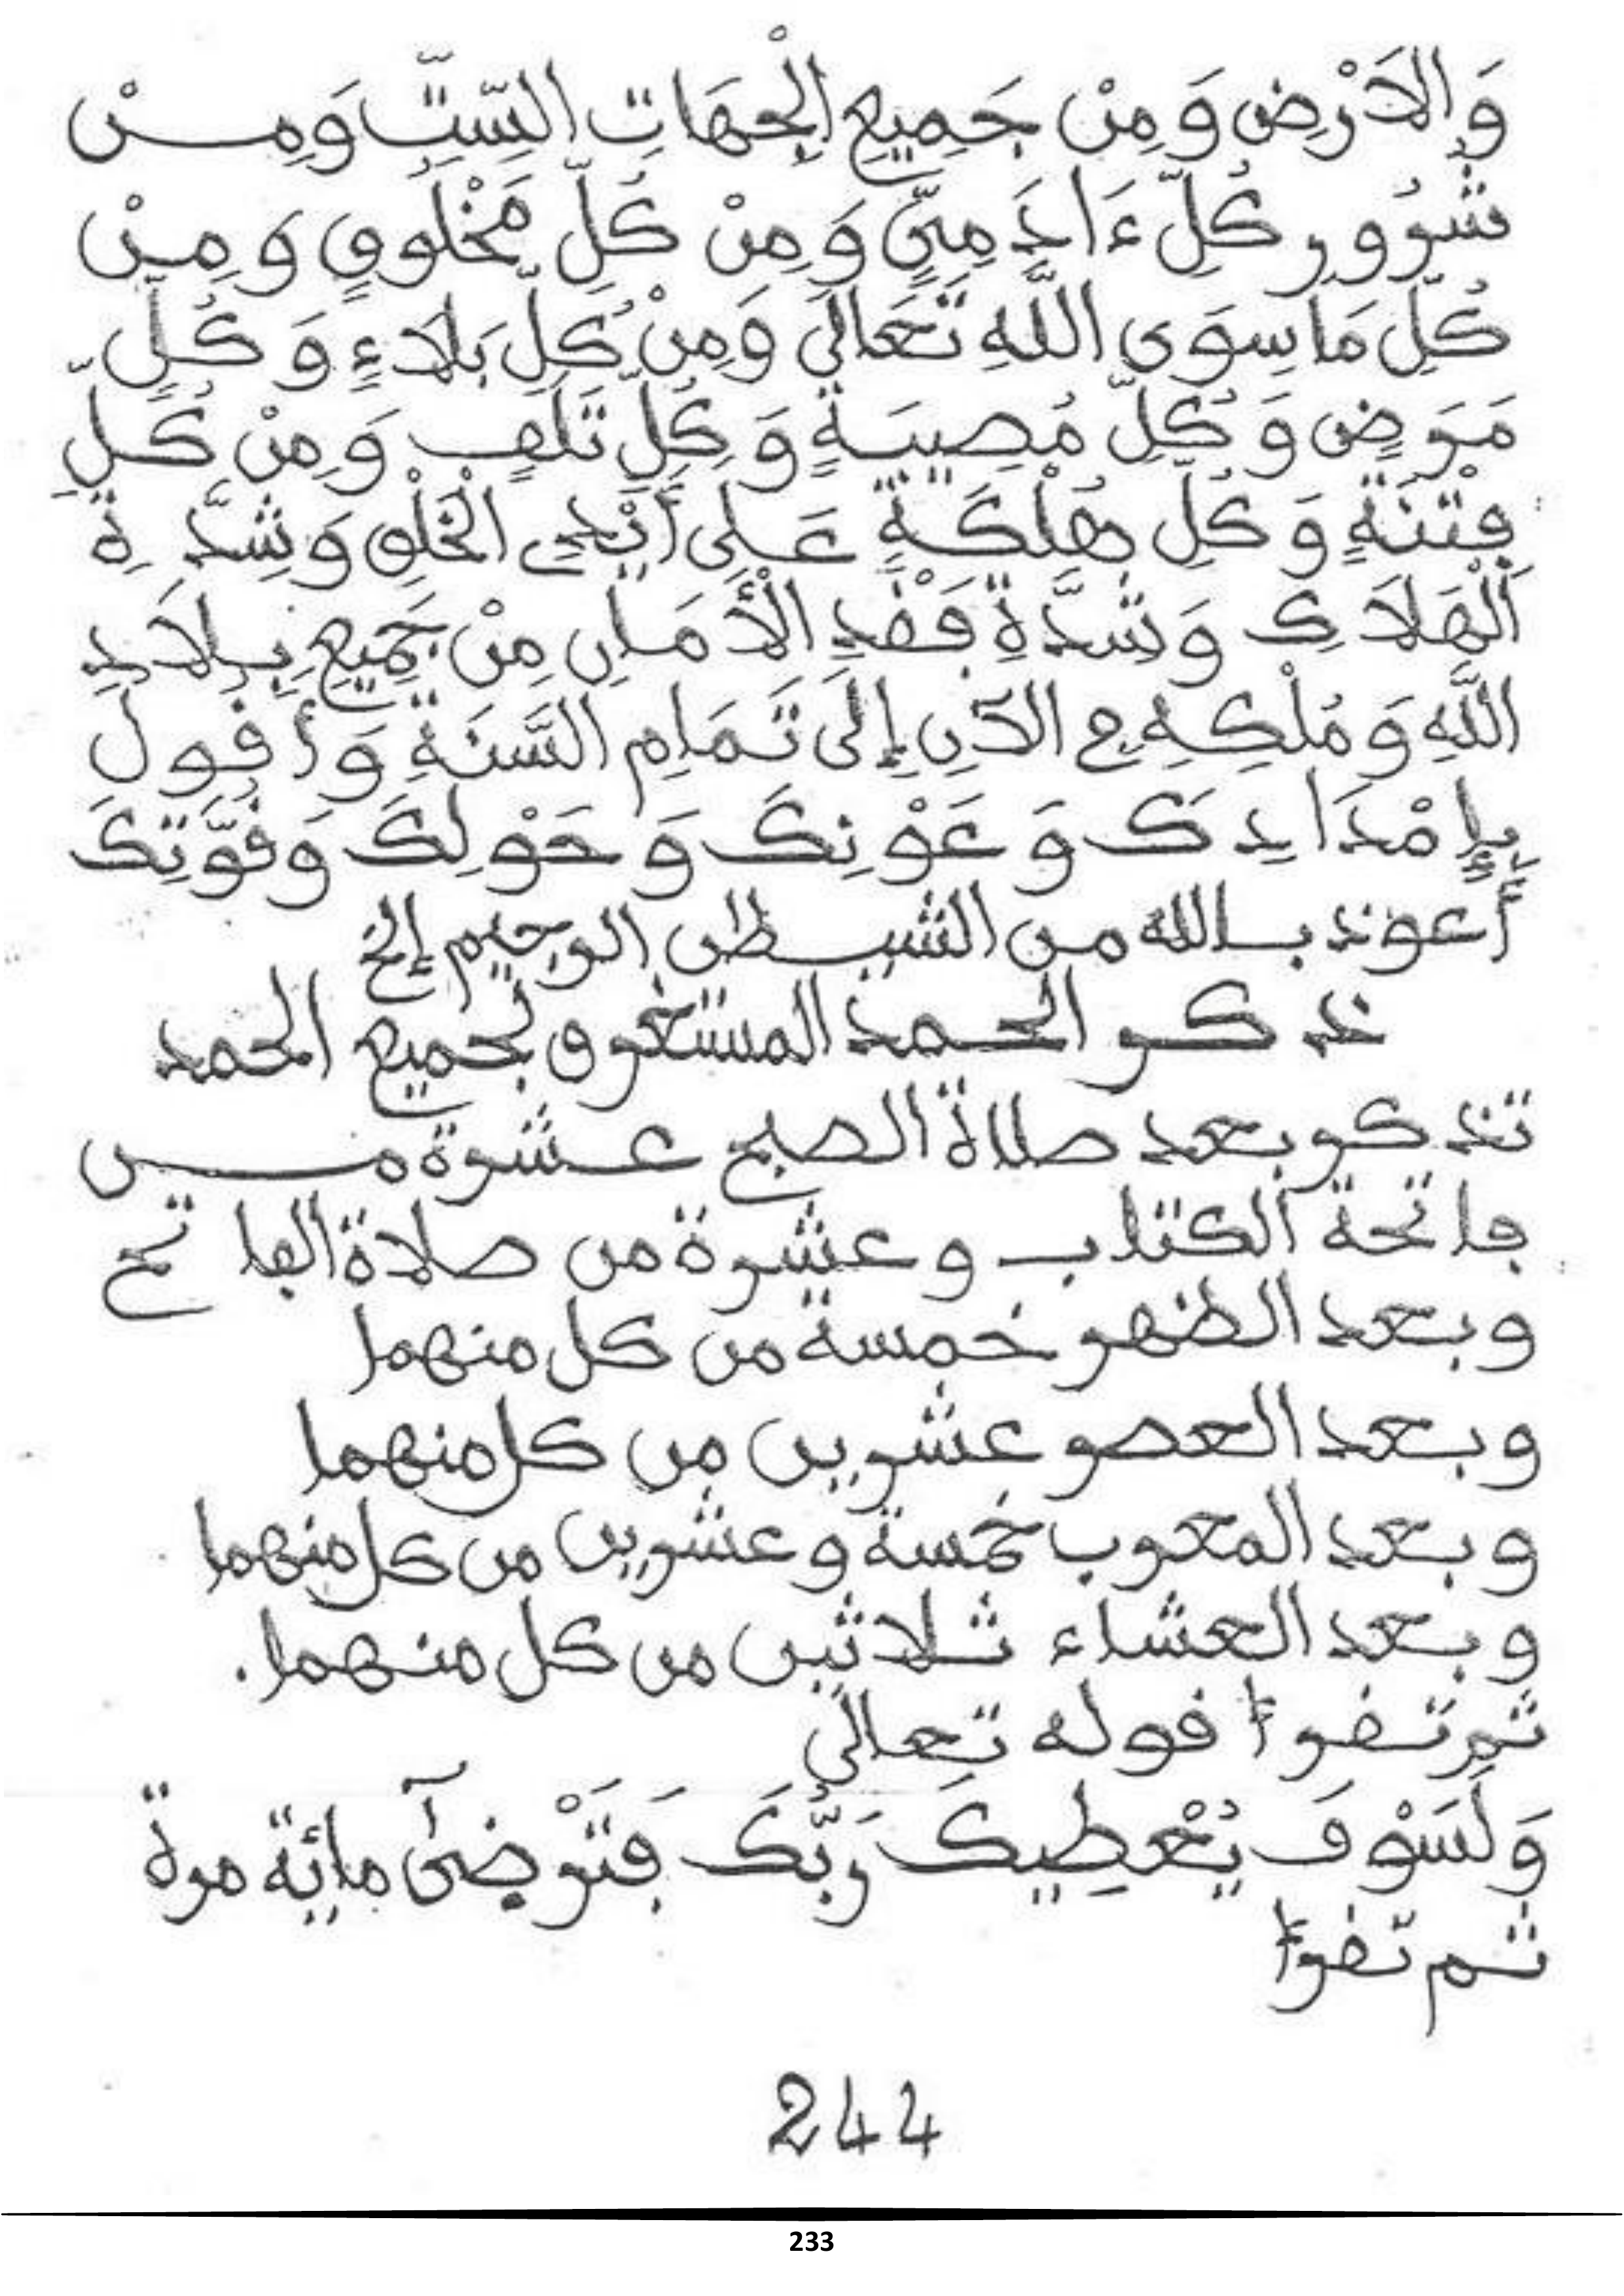 وَالَارْضِ وَمِنْ جَمِيعِ الْجِهَاتِ السِّتِّ وَمِنْ
شُرُورِ كُلِّ ءَادَمِيٍّ وَمِنْ كُلِّ مَخْلُوقٍ وَمِنْ
كُلِّ مَا سِوَى اللَّهِ تَعَالَى وَمِنْ كُلِّ بَلَاءٍ وَكُلِّ
مَرَضٍ وَكُلِّ مُصِيبَةٍ وَكُلِّ تَلَفٍ وَمِنْ كُلِّ
فِتْنَةٍ وَكُلِّ هُلْكَةٍ عَلَى أَيْدِي الْخَلْقِ وَشِدَّةِ
الْهَلَاكِ وَشِدَّةِ فَقْدِ الْأَمَانِ مِنْ جَمِيعِ بِلَادِ
اللَّهِ وَمُلْكِهِ مِنَ الآنِ إِلَى تَمَامِ السَّنَةِ وَأَقُولُ
بِإِمْدَادِكَ وَعَوْنِكَ وَحَوْلِكَ وَقُوَّتِكَ
أعوذ بالله من الشيطن الرجيم إلخ
ذكر الحمد المستغرق لجميع الحمد
تذكر بعد صلاة الصبح عشرة من
فاتحة الكتاب وعشرة من صلاة الفاتح
وبعد الظهر خمسة من كل منهما
وبعد العصر عشرين من كل منهما
وبعد المغرب خمسة وعشرين من كل منهما
وبعد العشاء ثلاثين من كل منهما.
ثم تقرأ قوله تعالى
وَلَسَوْفَ يُعْطِيكَ رَبُّكَ فَتَرْضَىٰٓ مائة مرة
ثم تقرأ
244
233